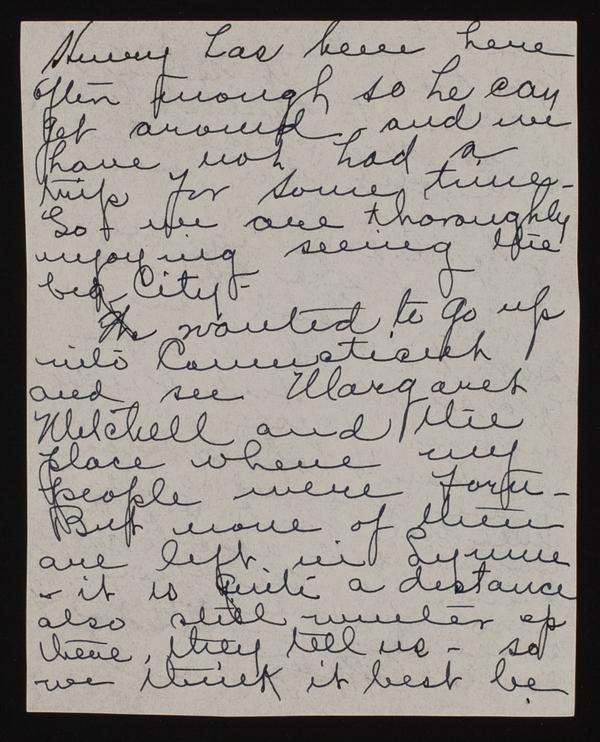 Henry has been here
often enough so he can
get around and we
have not had a
trip for some time -
So we are thoroughly
enjoying seeing the
big City -
We wanted to go up
into Connecticut
and see Margaret
Mitchell and the
place where my
people were from -
But none of them
are left in Lynne
- it is quite a distance
also still winter up
there, they tell us - so
we think it best be